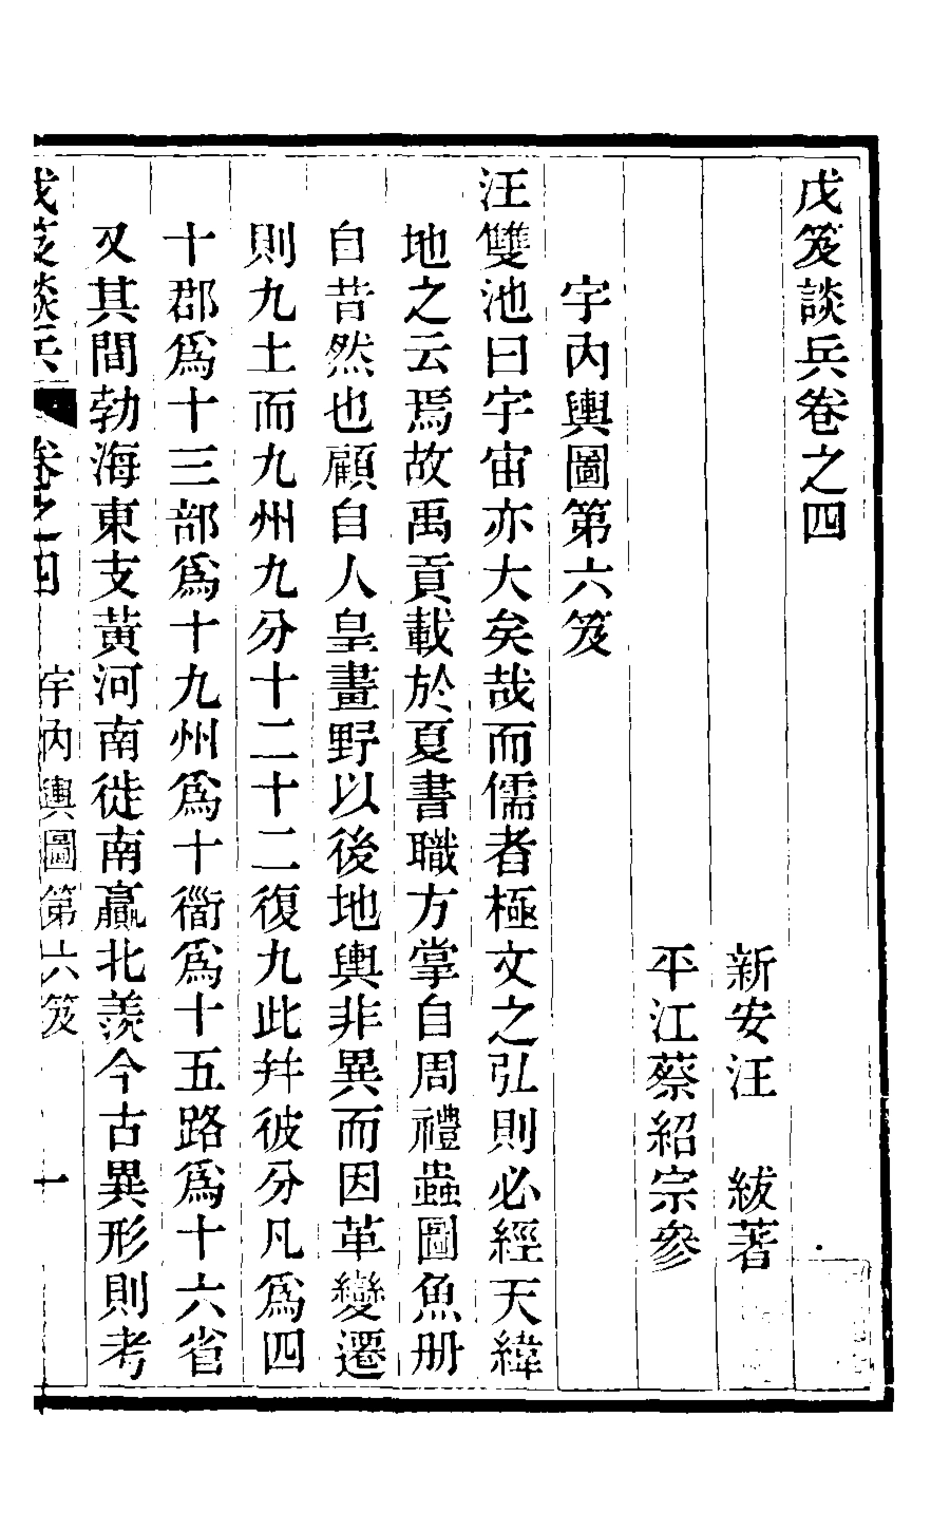 戊笈談兵卷之四
新安汪　紱著
平江蔡紹宗參
宇內輿圖第六笈
汪雙池曰宇宙亦大矣哉而儒者極文之弘則必經天緯
地之云焉故禹貢載於夏書職方掌自周禮蟲圖魚册
自昔然也顧自人皇畫野以後地輿非異而因革變遷
則九土而九州九分十二十二復九此并彼分凡爲四
十郡爲十三部爲十九州爲十衟爲十五路爲十六省
又其間勃海東支黃河南徙南贏北羨今古異形則考
戊笈談兵　卷之四　宇內輿圖第六笈　一